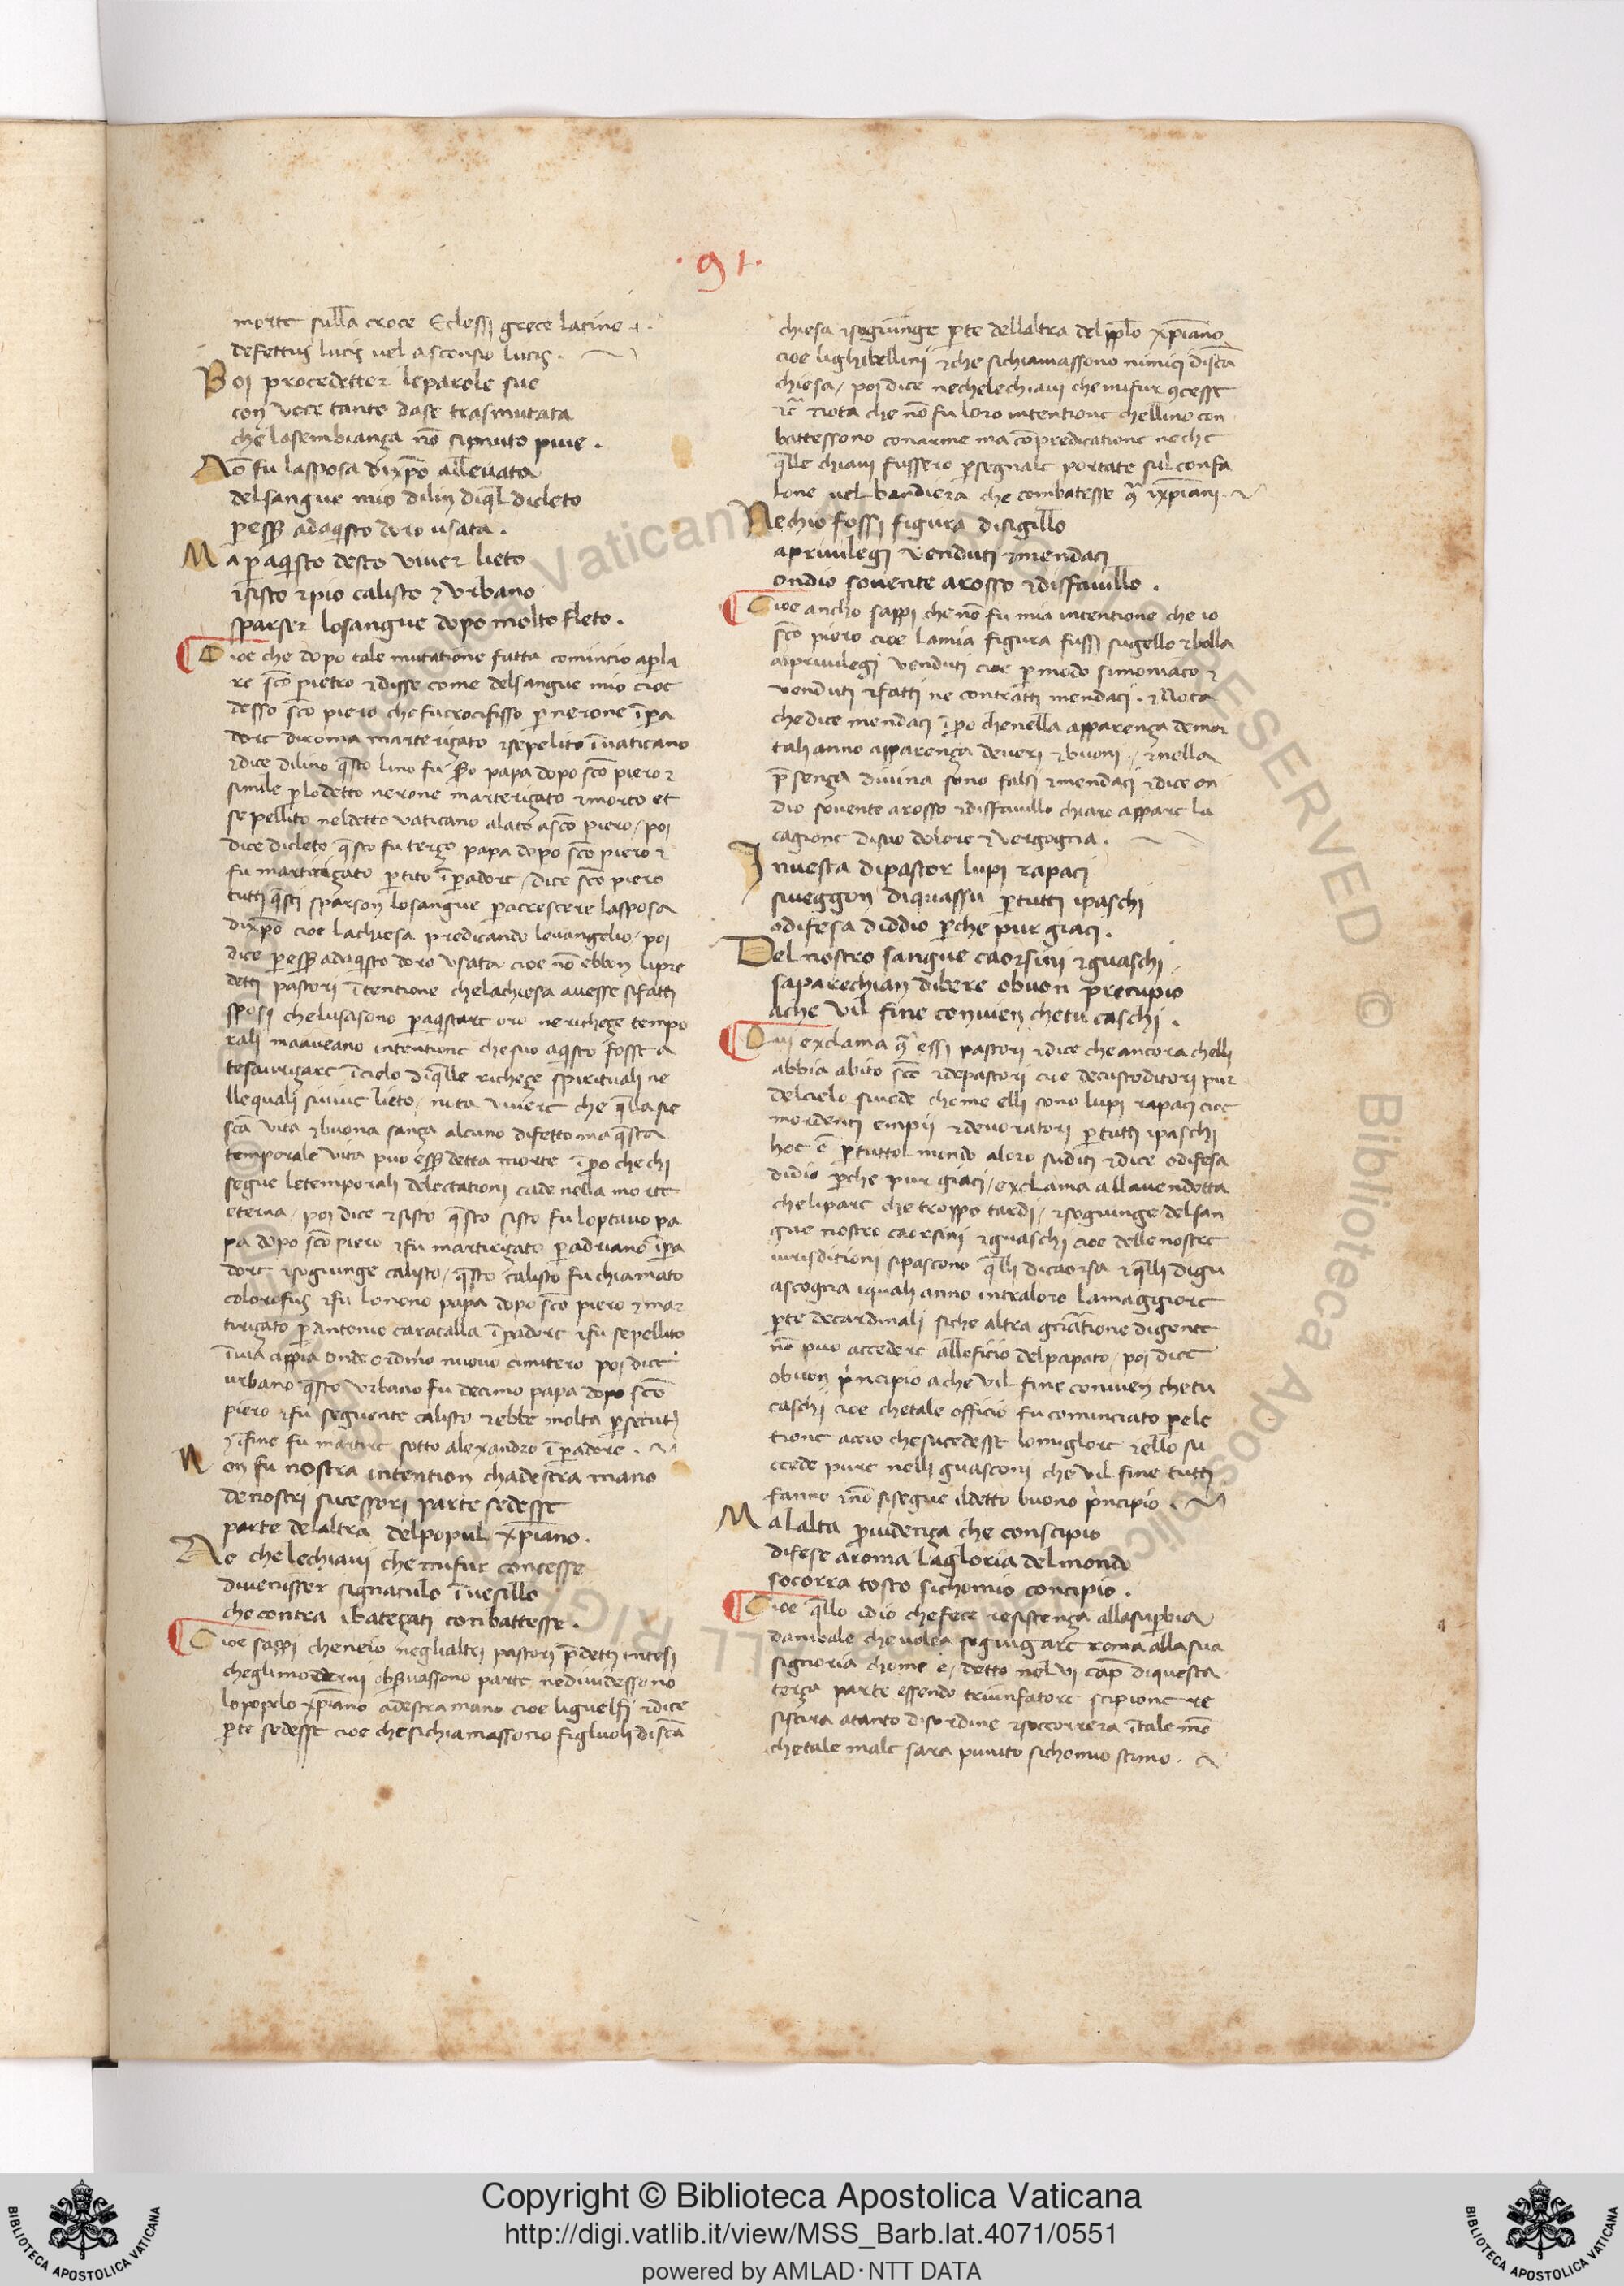 .91.
morte sulla croce Eclessi grece latine .i.
defettus lucis uel ascensio lucis .
Poi procedetter leparole sue
con uoce tanto dase trasmutata
che lasembianza nō simuto piue .
Nō fu lasposa dixp̄o alleuata
delsangue mio dilin diq̄l dicleto
p essē adaq̄sto doro usata .
Ma p aq̄isto desto uiuer lieto
& sisto & pio calisto & urbano
sparser losangue dopo molto fleto .
Cioe che dopo tale mutatione fatta comincio apla
re sc̄o pietro & disse come delsangue mio cioe
desso sc̄o piero che fucrocifisso p nerone īpa
dore diroma marterizato & sepelito īuaticano
& dice dilino q̄sto lino fu p̄o papa dopo sc̄o piero &
simile p lodetto nerone marterizato & morto et
sepellito neldetto uaticano alato asc̄o piero / poi
dice dicleto q̄sto fu terzo papa dopo sc̄o piero &
fu martirizato p tito īpadore / dice sc̄o piero
tutti q̄sti sparson losangue p acrescere lasposa
dixp̄o cioe lachiesa predicando leuangelio / poi
dice p essē adaq̄isto doro usata cioe nō ebbon lipre
detti pastori ītentione chelachiesa auesse sifatti
sposi chelusasono p aq̄istare oro ne richeze tempo
rali maaueano intentione chesuo aq̄isto fosse a
tesaurizare īcielo diq̄lle richeze spirituali ne
llequali siuiue lieto / nota uiuere che q̄lla sie
sc̄a uita & buona sanza alcuno difetto ma q̄sta
temporale uita puo essē detta morte īpo che chi
segue letemporali delectationi cade nella morte
eterna / poi dice & sisto q̄sto sisto fu loptauo pa
pa dopo sc̄o piero & fu martirizato p adriano īpa
dore & sogiunge calisto / q̄sto calisto fu chiamato
colorofus & fu lonono papa dopo sc̄o piero & mar
tirizato p antonio caracalla īpadore & fu sepellito
īuia appia onde ordino nuouo cimitero poi dice
urbano q̄sto urbano fu decimo papa dopo sc̄o
piero & fu seguente calisto & ebbe molta psecuti
& īfine fu martire sotto alexandro īpadore .
Non fu nostra intention chadestra mano
denostri sucessori parte sedesse
parte delaltra delpopul xp̄iano .
Ne che lechiaui che mifur concesse
diuenisser signaculo īuesillo
che contra ibatezati conbattesse .
Cioe sappi che neio neglialtri pastori p̄detti intesi
cheglimoderni obs̄uassono parte nediuidessono
lopoplo xp̄iano adestra mano cioe liguelfi & dice
pte sedesse cioe che sichiamassono figluoli disc̄a
chiesa & sogiunge pte dellaltra del pplo xp̄iano
cioe lighibellini & che sichiamassono nimici disc̄a
chiesa / poi dice nechelechiaui chemifur 9cesse
&c̄ Nota che nō fu loro intentione chellino con
battessono conarme ma cō predicatione neche
q̄lle chiaui fussero p segnale portate sul confa
lone uel bandiera che combatesse q̄ ixp̄iani .
Nechio fossi figura disigillo
apriuilegi uenduti & mendaci
ondio souente arosso & disfauillo .
Cioe ancho sappi che nō fu mia intentione che io
sc̄o piero cioe lamia figura fussi sugello & bolla
aipriuilegi uenduti cioe p modo simoniaco &
uenduti & fatti ne contratti mendaci . & Nota
che dice mendaci īpo chenella apparenza demor
tali anno apparenza deueri & buoni / & nella
p̄senza diuina sono falsi & mendaci & dice on
dio souente arosso & disfauillo chiaro appare la
cagione disuo dolore & uergogna .
Inuesta dipastor lupi rapaci
siueggon diquassu p tutti ipaschi
odifesa diddio pche pur giaci .
Del nostro sangue caorsini & guaschi
saparechian dibere obuon precipio
ache uil fine conuien chetu caschi .
Qui exclama q̄ essi pastori & dice che ancora chelli
abbia abito sc̄o & depastori cioe decustoditori pur
delcielo siuede chome elli sono lupi rapaci cioe
mordenti empii & deuoratori p tutti ipaschi
hoc ē p tuttol mondo aloro suditi & dice odifesa
didio pche pur giaci / exclama allauendetta
cheliparc che troppo tardi / & sogiunge delsan
gue nostro caorsini & guaschi cioe delle nostre
iurisditioni sipascono q̄lli dicaorsa & q̄lli digu
ascogna iquali anno intraloro lamaggiore
pte decardinali siche altra gn̄atione digente
nō puo accedere alloficio delpapato / poi dice
obuon p̄ncipio a che uil fine conuien chetu
caschi cioe chetale officio fu cominciato p ele
tione accio chesucedesse lomiglore & ello su
ccede pure nelli guasconi che uil fine tutti
fanno & nō sisegue ildetto buono p̄ncipio .
Malalta p̄uidenza che conscipio
difese aroma lagloria delmondo
socorra tosto sichomio concipio .
Cioe q̄llo idio chefece resistenza allasupbia
danibale che uolea sogiugare roma alla sua
signoria chome e / detto nel vi cap̄ diquesta
terza parte essendo triunfatore scipione re
sistera atanto disordine & soccorrera ītale mō
chetale male sara punito sichomio stimo .
Copyright © Biblioteca Apostolica Vaticana
http://digi.vatlib.it/view/MSS_Barb.lat.4071/0551
powered by AMLAD·NTT DATA
BIBLIOTECA APOSTOLICA VATICANA
BIBLIOTECA APOSTOLICA VATICANA